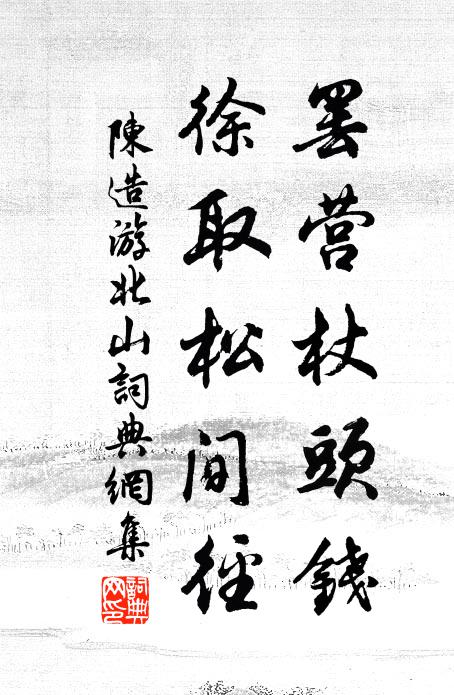 罢营杖頭錢
徐取松间径
陳造游北山詞典網集
詞典
网印